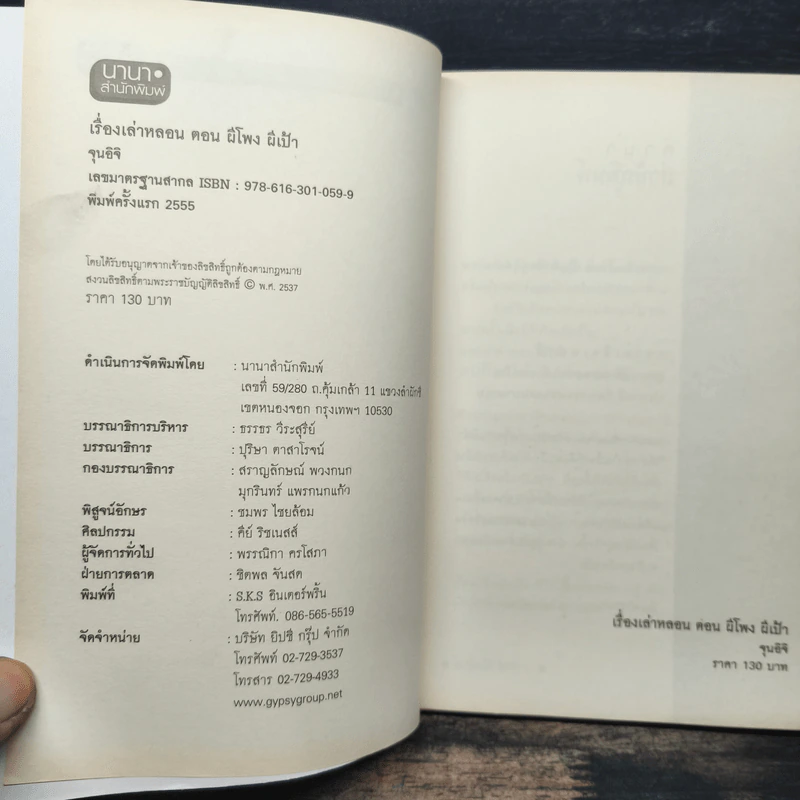 นานา
สำนักพิมพ์
เรื่องเล่าหลอน ตอน ผีโพง ผีเป้า
จุนอิจิ
เลขมาตรฐานสากล ISBN : 978-616-301-059-9
พิมพ์ครั้งแรก 2555
โดยได้รับอนุญาตจากเจ้าของลิขสิทธิ์ถูกต้องตามกฎหมาย
สงวนลิขสิทธิ์ตามพระราชบัญญัติลิขสิทธิ์ © พ.ศ. 2537
ราคา 130 บาท
ดำเนินการจัดพิมพ์โดย : นานาสำนักพิมพ์
เลขที่ 59/280 ถ.คุ้มเกล้า 11 แขวงลำผักชี
เขตหนองจอก กรุงเทพฯ 10530
บรรณาธิการบริหาร : ธรรธร วีระสุรีย์
บรรณาธิการ : ปุริษา ตาสาโรจน์
กองบรรณาธิการ : สราญลักษณ์ พวงกนก
มุกรินทร์ แพรกนกแก้ว
พิสูจน์อักษร : ชมพร ไชยล้อม
ศิลปกรรม : คีย์ ริชเนสส์
ผู้จัดการทั่วไป : พรรณิกา ครโสภา
ฝ่ายการตลาด : ชิตพล จันสด
พิมพ์ที่ : S.K.S อินเตอร์พริ้น
โทรศัพท์. 086-565-5519
จัดจำหน่าย : บริษัท ยิปซี กรุ๊ป จำกัด
โทรศัพท์ 02-729-3537
โทรสาร 02-729-4933
www.gypsygroup.net
เรื่องเล่าหลอน ตอน ผีโพง ผีเป้า
จุนอิจิ
ราคา 130 บาท